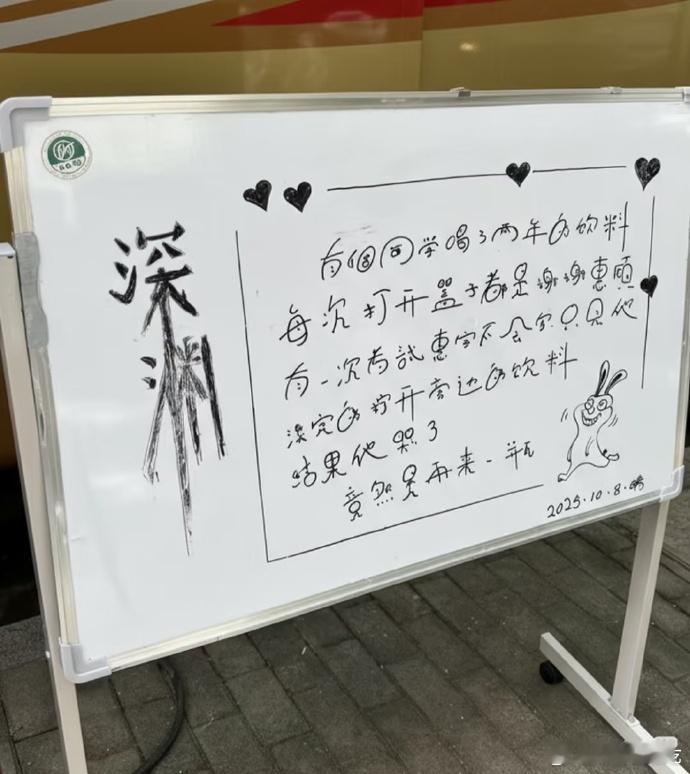 深渊
有個同学喝了两年的饮料
每次打开盖子都是谢谢惠顾
有一次考試惠字不会写只见他
淡定的拧开旁边的饮料
结果他哭了
竟然是再来一瓶
2025.10.8.晴